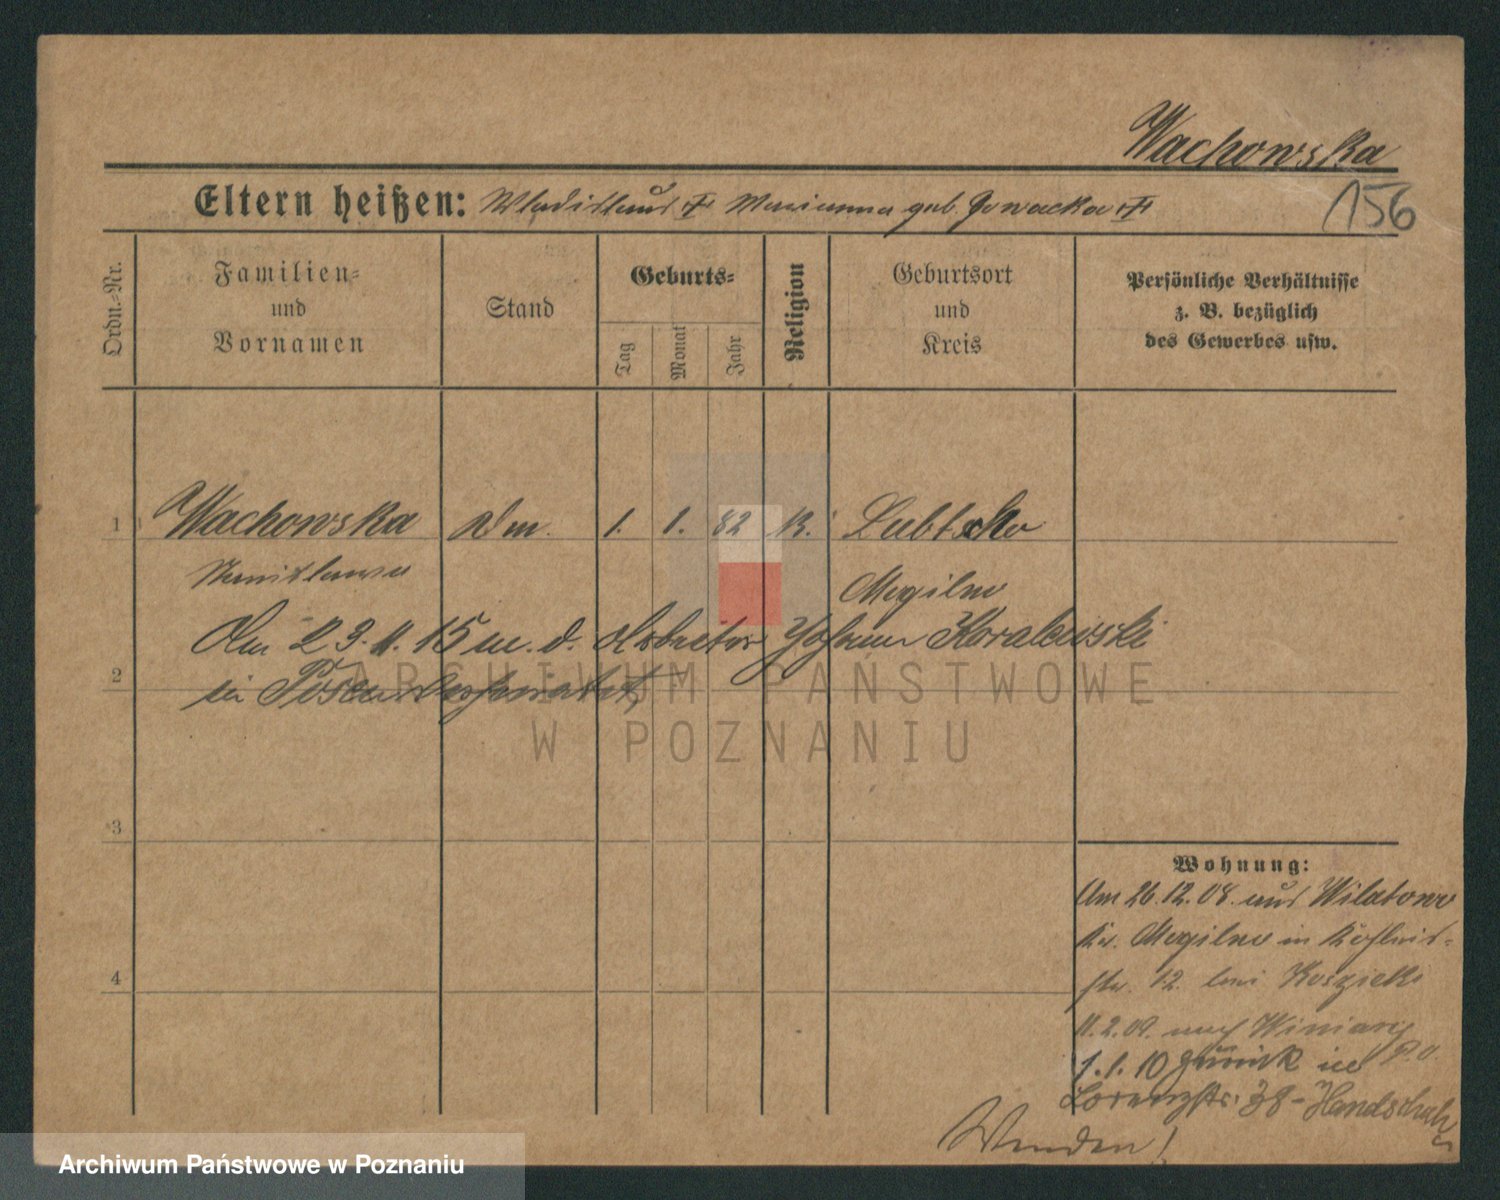 Wachowska
156
Eltern heißen: Wladislaus † Marianna geb. Nowacka †
Ordn.-Nr.
Familien-
und
Vornamen
Stand
Geburts-
Tag
Monat
Jahr
Religion
Geburtsort
und
Kreis
Persönliche Verhältnisse
z. B. bezüglich
des Gewerbes usw.
1 Wachowska 1. 1. 82 K. Lubtschko
Stanislawa Mogilno
Am 23. 11. 15 m. d. Arbeiter Johann
2 in Posen verheiratet,
3
4
Wohnung:
Am 26.12.08. aus Wilatowo
Kr. Mogilno in
str. 12. bei Koszicki
11.2.09. nach Winiary
1.1.10 zurück in P. O.
Lorenzstr. 38 - Handschuh
Wenden!
ARCHIWUM PAŃSTWOWE
W POZNANIU
Archiwum Państwowe w Poznaniu